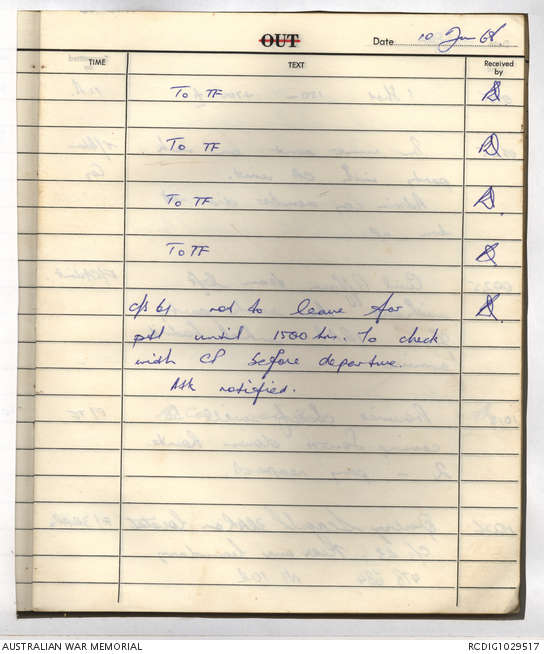 OUT
Date 10 Jan 68.
TIME
TEXT
Received by
To TF
To TF
To TF
To TF
c/s 61 not to leave for
ptl until 1500 hrs. To check
with CP before departure.
Ask notified.
AUSTRALIAN WAR MEMORIAL
RCDIG1029517